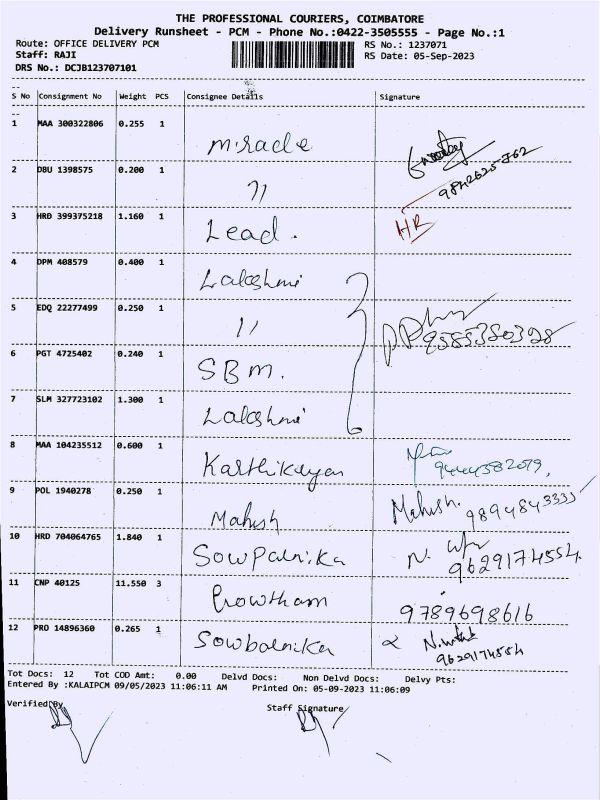 THE PROFESSIONAL COURIERS, COIMBATORE
Delivery Runsheet - PCM - Phone No.:0422-3505555 - Page No.:1
Route: OFFICE DELIVERY PCM RS No.: 1237071
Staff: RAJI RS Date: 05-Sep-2023
DRS No.: DCJB123707101
S No Consignment No Weight PCS Consignee Details Signature
1 MAA 300322806 0.255 1 Miracle
2 DBU 1398575 0.200 1 " 9842625762
3 HRD 399375218 1.160 1 Lead. HR
4 DPM 408579 0.400 1 Lakshmi
5 EDQ 22277499 0.250 1 "
6 PGT 4725402 0.240 1 SBM.
7 SLM 327723102 1.300 1 Lakshmi
8 MAA 104235512 0.600 1 Karthikeyan
9444382079,
9 POL 1940278 0.250 1 Mahish Mahish. 9894843333
10 HRD 704064765 1.840 1 Sowparnika N.
9629174554
11 CNP 40125 11.550 3 Growtham 9789698616
12 PRO 14896360 0.265 1 Sowbarnika
9629174554
Tot Docs: 12 Tot COD Amt: 0.00 Delvd Docs: Non Delvd Docs: Delvy Pts:
Entered By :KALAIPCM 09/05/2023 11:06:11 AM Printed On: 05-09-2023 11:06:09
Verified By Staff Signature